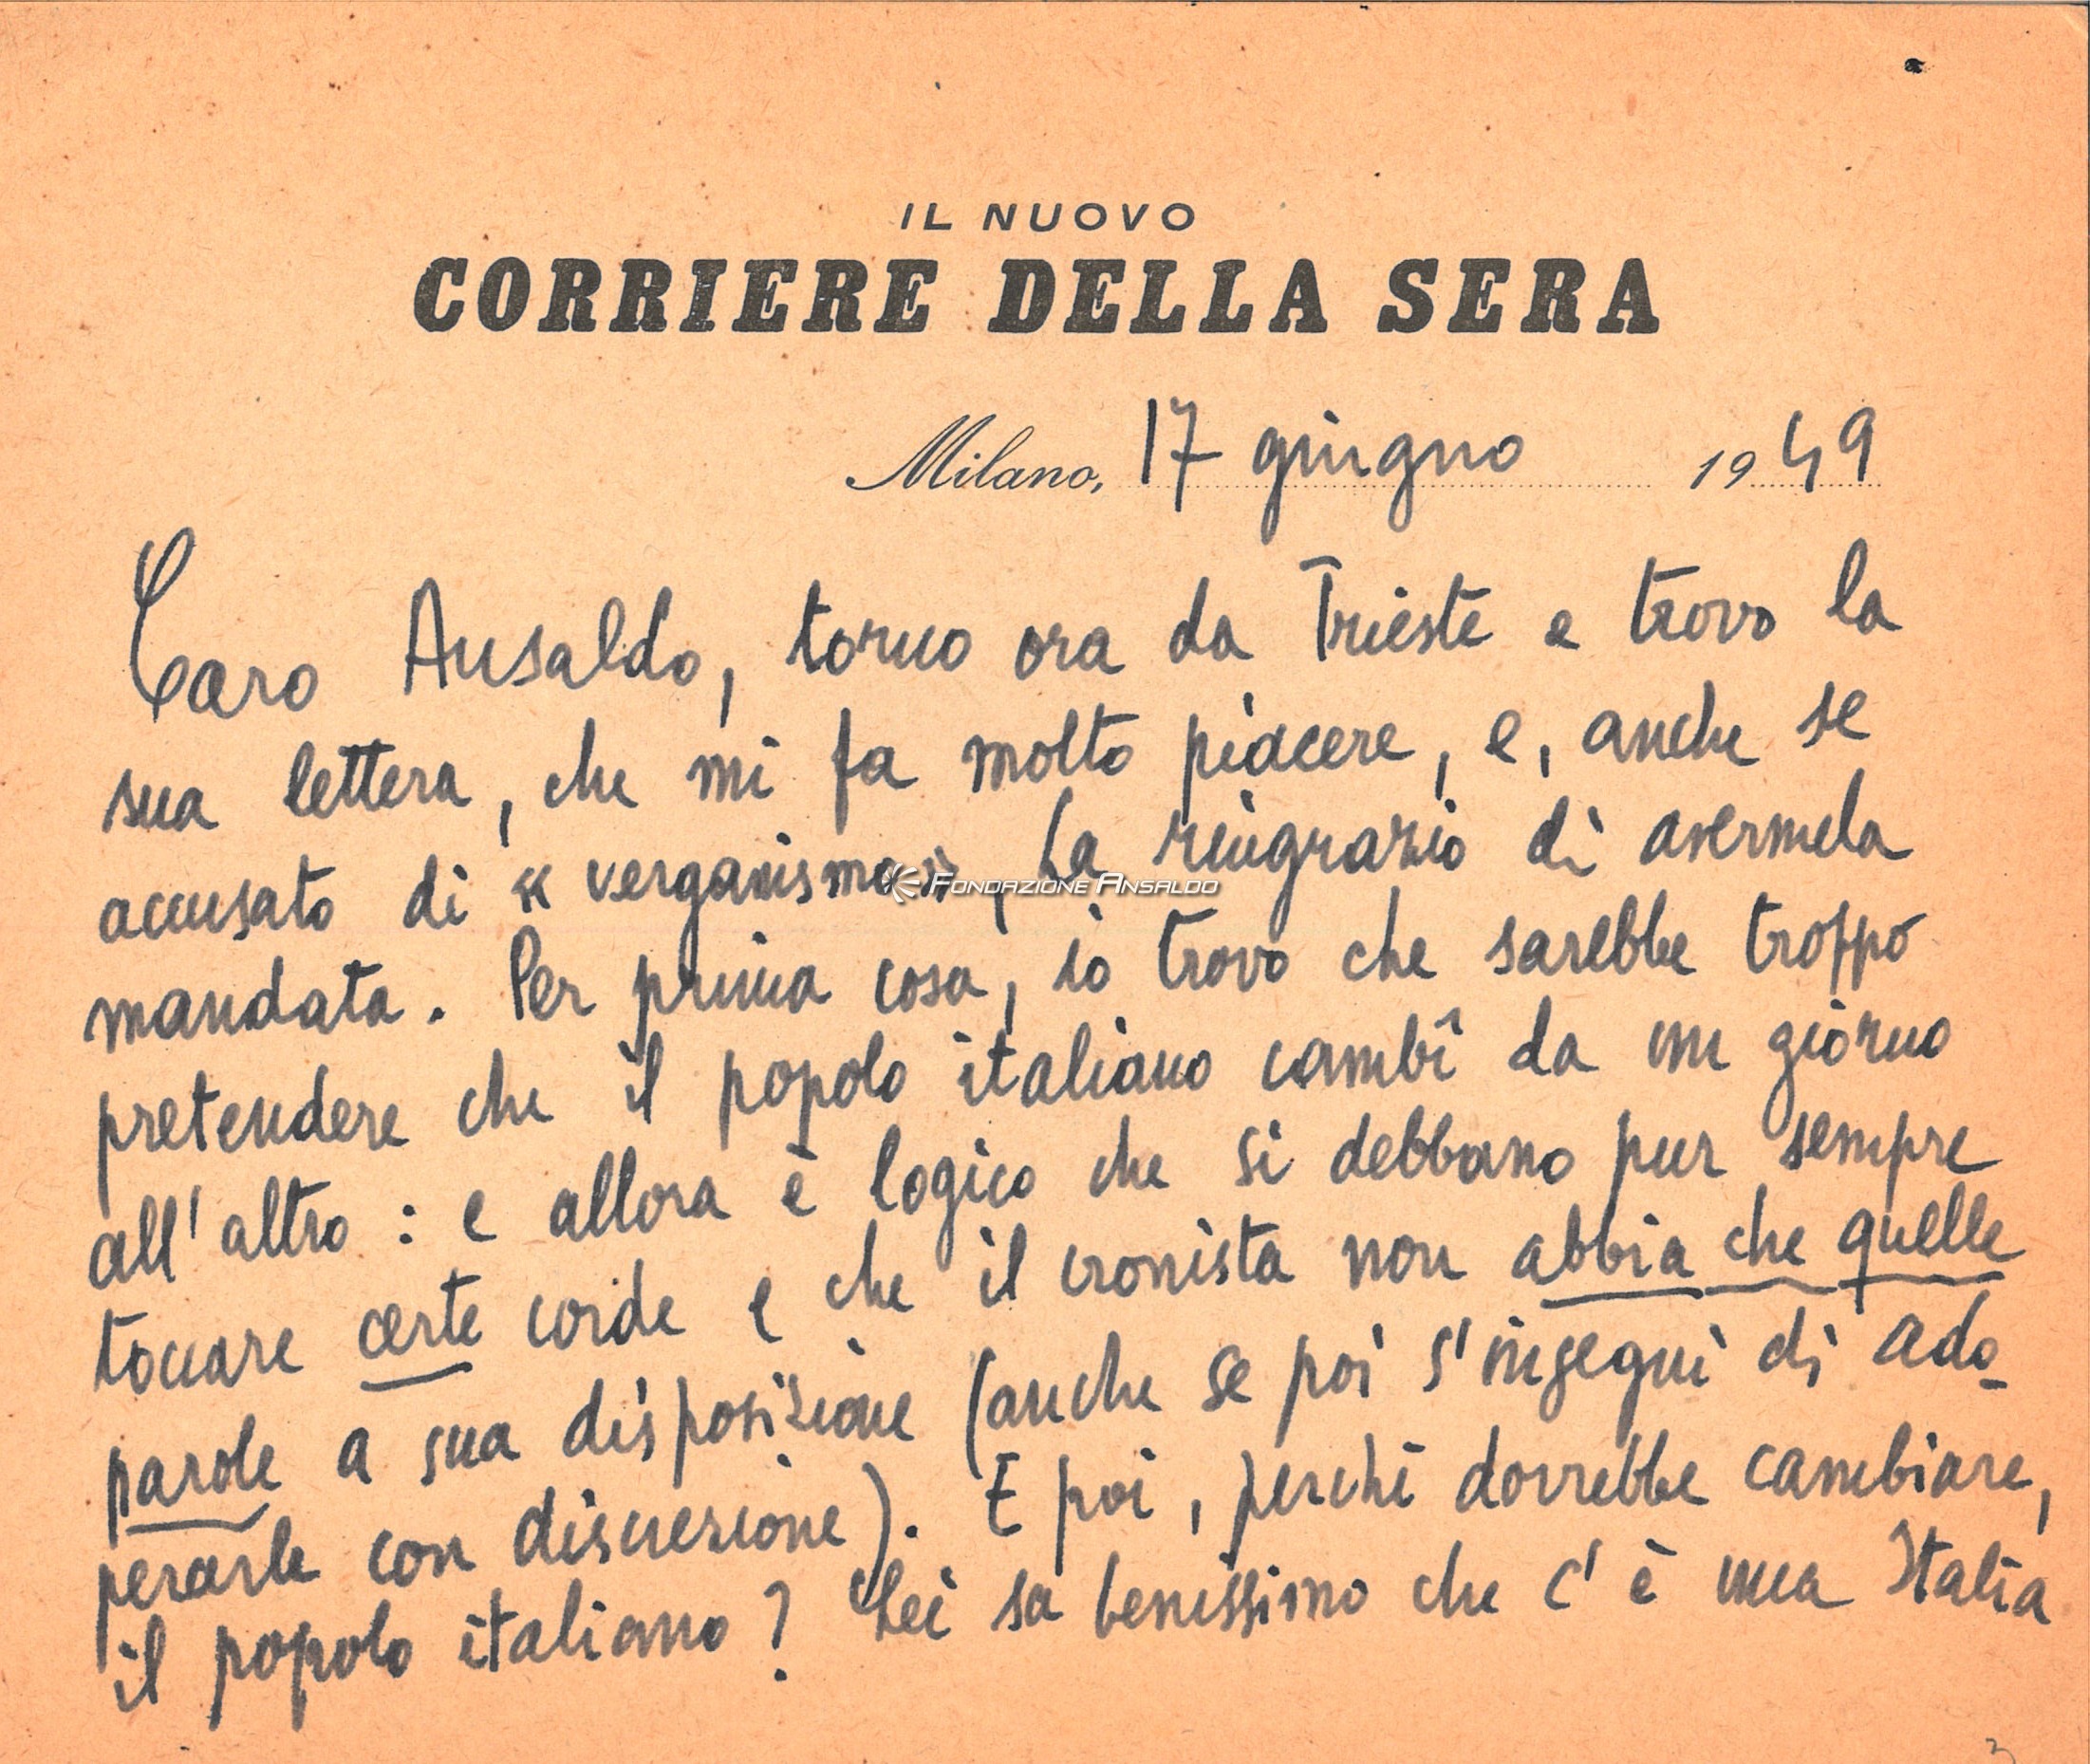 IL NUOVO
CORRIERE DELLA SERA
Milano, 17 giugno 1949
Caro Ansaldo, torno ora da Trieste e trovo la
sua lettera, che mi fa molto piacere, e, anche se
accusato di « verganismo », La ringrazio di avermela
FONDAZIONE ANSALDO
mandata. Per prima cosa, io trovo che sarebbe troppo
pretendere che il popolo italiano cambî da un giorno
all'altro : e allora è logico che si debbano pur sempre
toccare certe corde e che il cronista non abbia che quelle
parole a sua disposizione (anche se poi s'ingegni di ado-
perarle con discrezione). E poi, perché dovrebbe cambiare,
il popolo italiano? Lei sa benissimo che c'è una Italia